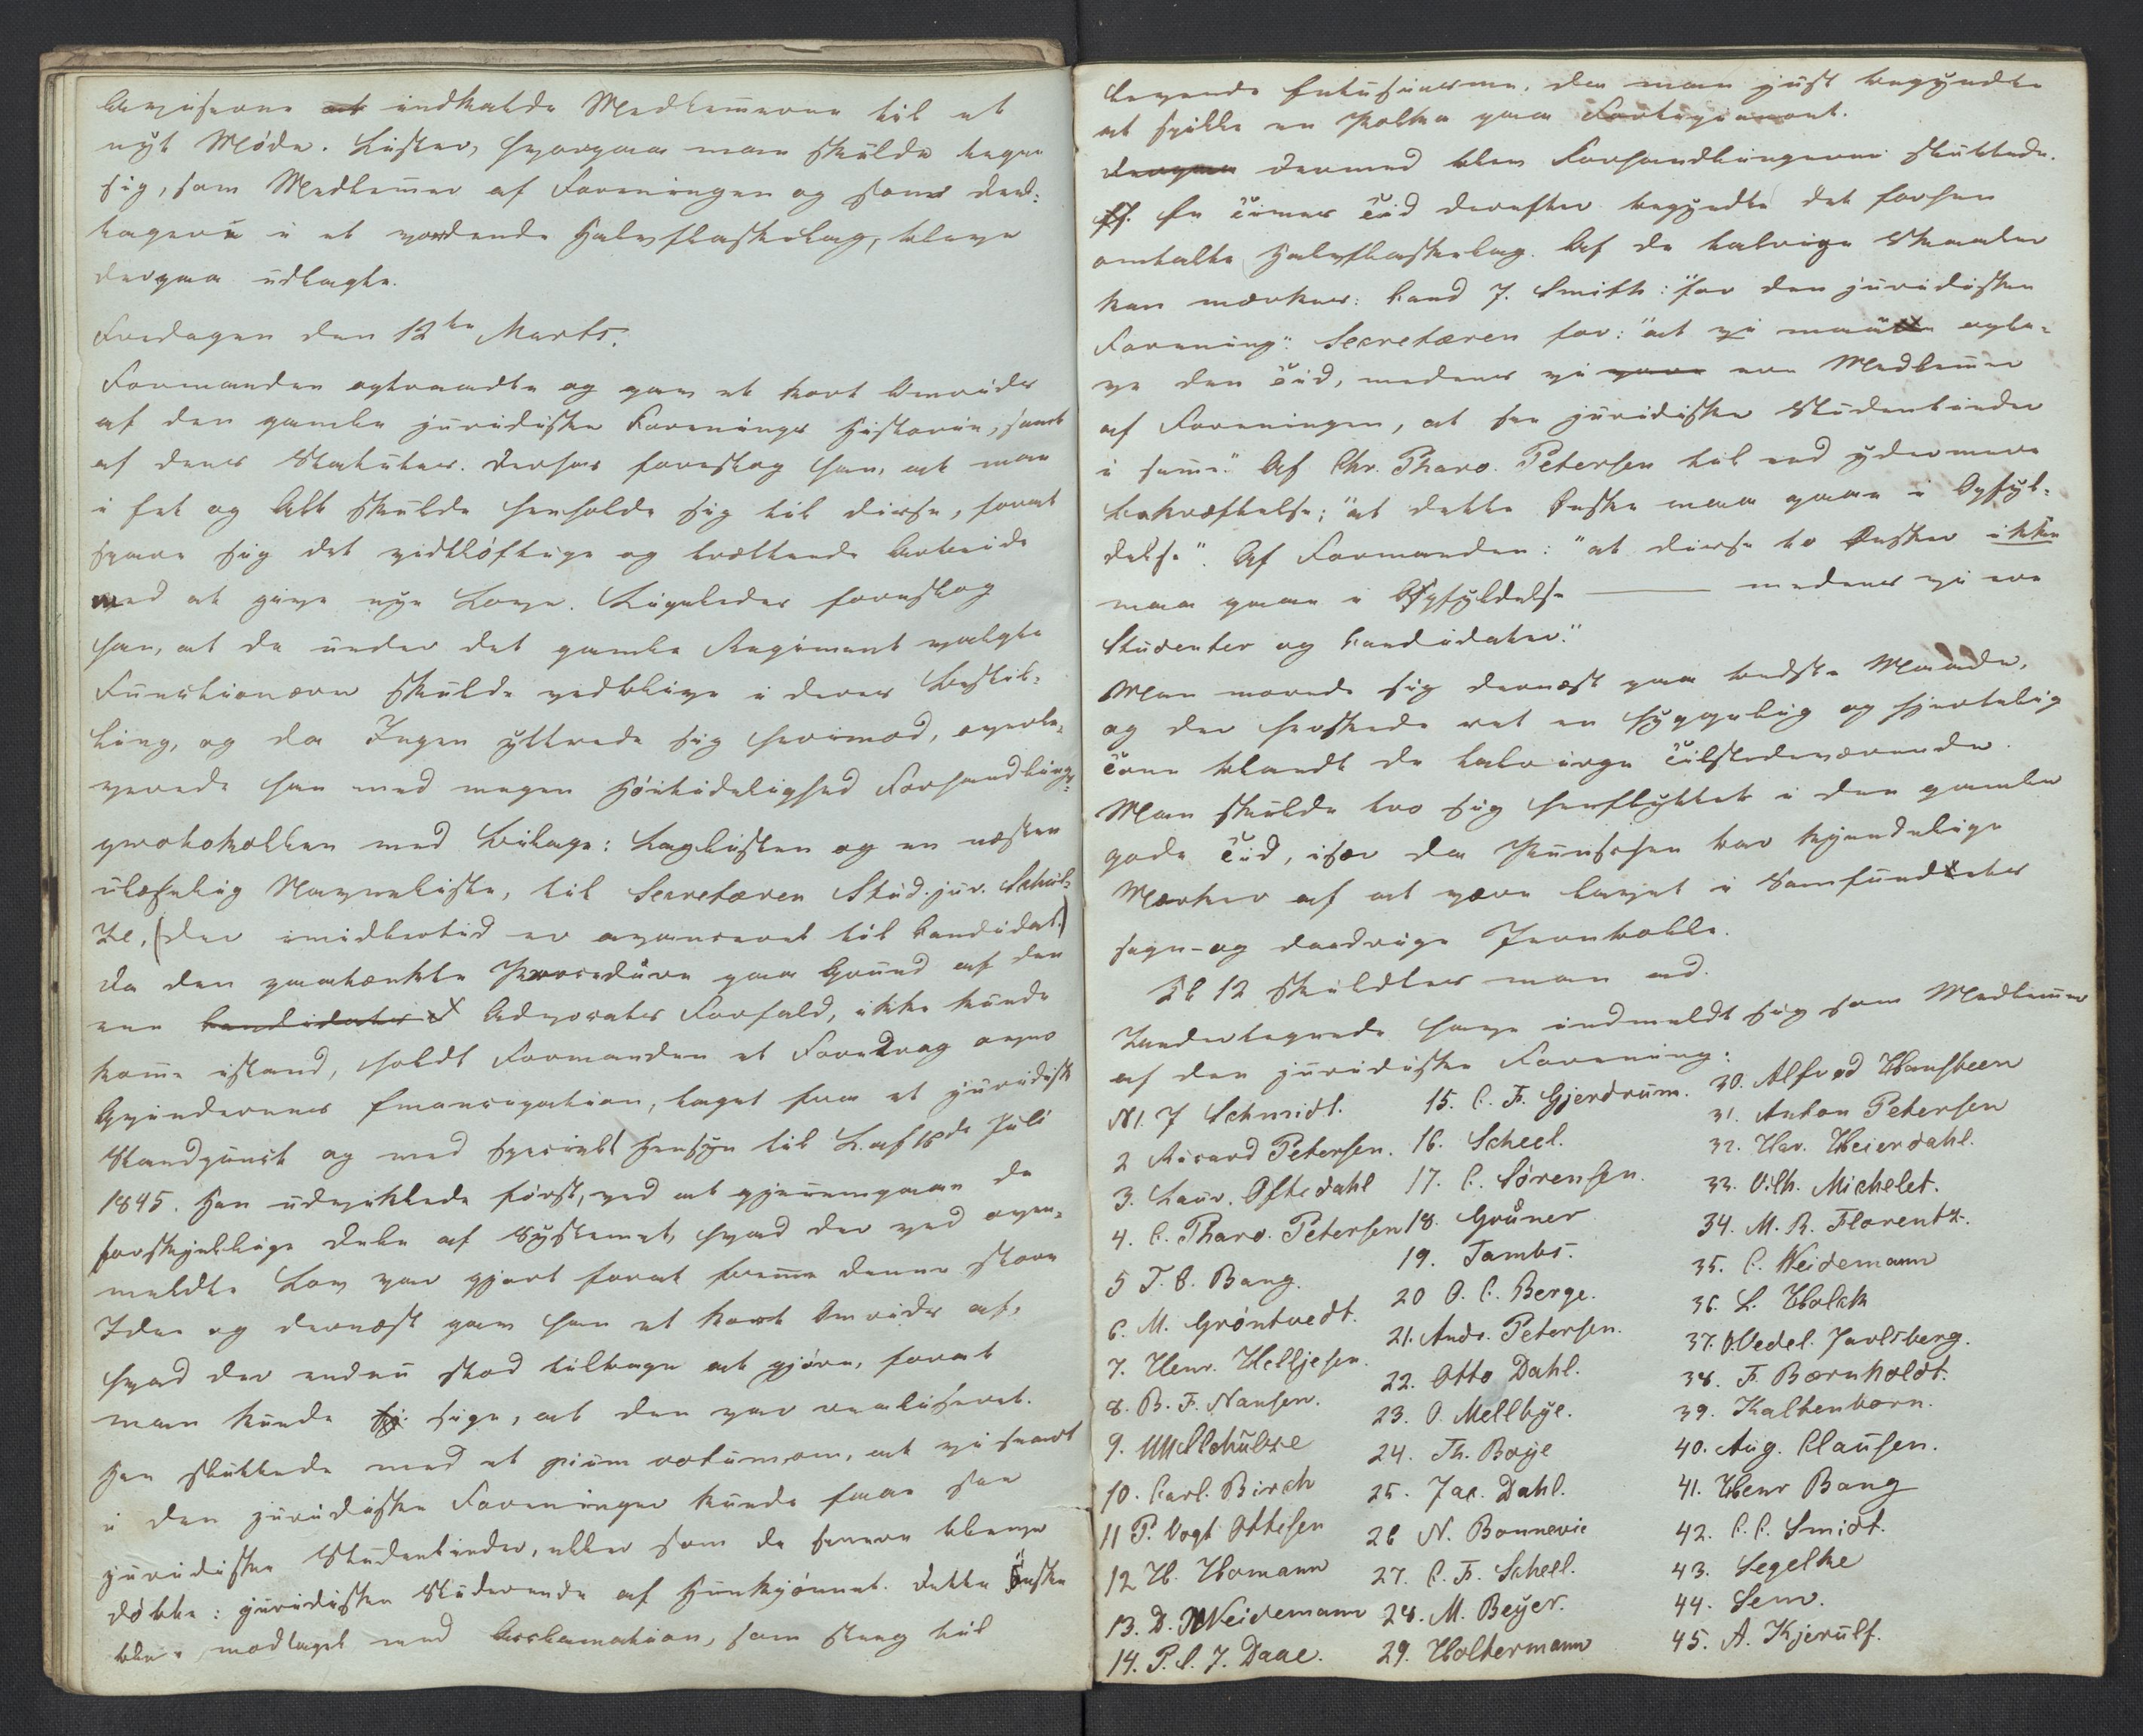 Aviserne at indkalde Medlemmerne til et
nyt Møde. Lister, hvorpaa man skulde tegne
sig, som Medlemmer af Foreningen og som deel-
tagere i et vordende Halvflaskelag, bleve
derpaa udlagte.
Fredagen den 12te Marts.
Formanden optraadte og gav et kort Omrids
af den gamle juridiske Forenings Historie, samt
af dens Statuter. Derfor foreslog han, at man
i Eet og Alt skulde henholde sig til disse, forat
spare sig det vidtløftige og trættende Arbeide
med at give nye Love. Ligeledes foreslog
han, at de under det gamle Regiment valgte
Functionærer skulde vedblive i deres Bestil-
ling, og da Ingen yttrede sig herimod, overle-
verede han med megen Høitidelighed Forhandlings-
protokollen med Bilage: Laglisten og en næsten
ulæselig Navneliste, til Secretæren Stud. jur. Schul-
ze, (der imidlertid er avanceret til Candidat.)
Da den paatænkte Procedure paa Grund af den
ene Candidats Advocats Forfald, ikke kunde
komme istand, holdt Formanden et Foredrag over
Qvindernes Emancipation, taget fra et juridisk
Standpunct og med specielt Hensyn til L. af 18de Juli
1845. Han udviklede først, ved at gjennemgaae de
forskjellige Dele af Systemet, hvad der ved oven-
meldte Lov var gjort forat fremme denne store
Idee og dernæst gav han et kort Omrids af,
hvad der endnu stod tilbage at gjøre, forat
man kunde sige, at den var realiseret.
Han sluttede med et pium votum om, at vi snart
i den juridiske Foreninger kunde faae see
juridiske Studentinder, eller som de senere bleve
døbte: juridiske Studerende af Hunkjønnet. Dette Ønske
blev modtaget med Acclamation, som steeg til
levende Enthusiasme, da man just begyndte
at spille en Polka paa Fortepianoet.
derpaa dermed blev Forhandlingerne sluttede.
En Times Tid derefter begyndte det forhen
omtalte Halvflaskelag. Af de talrige Skaaler
kan mærkes: Cand J. Smith: "for den juridiske
Forening". Secretæren for: "at vi maatte ople-
ve den Tid, medens vi vare ere Medlemmer
af Foreningen, at see juridiske Studentinder
i samme". Af Chr. Tharo. Petersen til end ydermere
bekræftelse; "at dette Ønske maa gaae i Opfyl-
delse". Af Formanden: "at disse to Ønsker ikke
maa gaae i Opfyldelse ——— medens vi ere
Studenter og Candidater."
Man morede sig dernæst paa bedste Maade,
og der herskede ret en hyggelig og hjertelig
Tone blandt de talrige Tilstedeværende.
Man skulde tro sig henflyttet i den gamle
gode Tid, især da Punschen bar kjendelige
Mærker af at være lavet i Samfundets
sagn- og daadrige Jernbolle.
Kl 12 skildtes man ad.
Undertegnede have indmeldt sig som Medlemmer
af den juridiske Forening:
N1. J Schmidt.
2 Ricard Petersen.
3. Laur. Oftedahl
4. C. Tharo. Petersen
5 T. C. Bang.
6. M. Grøntvedt.
7. Henr. Helljesen.
8. B. F. Nansen.
9. Schulze
10. Carl. Birch
11 P. Vogt Ottesen
12 H. Homann
13. D. Weidemann
14. P. C. J. Daae.
15. C. F. Gjerdrum.
16. Scheel.
17. C. Sørensen.
18. Grüner
19. Tambs.
20 O. C. Berge.
21. Andr. Petersen.
22. Otto Dahl.
23. O. Mellbye.
24. Th. Boye
25. Jac. Dahl.
26 N. Bonnevie
27. C. F. Schell.
28. M. Beyer.
29. Holtermann
30. Alfred Hansteen
31. Anton Petersen
32. Hav. Heierdahl.
33. Vilh. Michelet.
34. M. R. Florentz.
35. C. Weidemann
36. L. Holck
37. O. Vedel. Jarlsberg.
38. F. Bærnholdt.
39. Kaltenborn.
40. Aug. Clausen.
41. Henr Bang
42. C. C. Smidt.
43. Segelke
44. Sem.
45. A. Kjerulf.